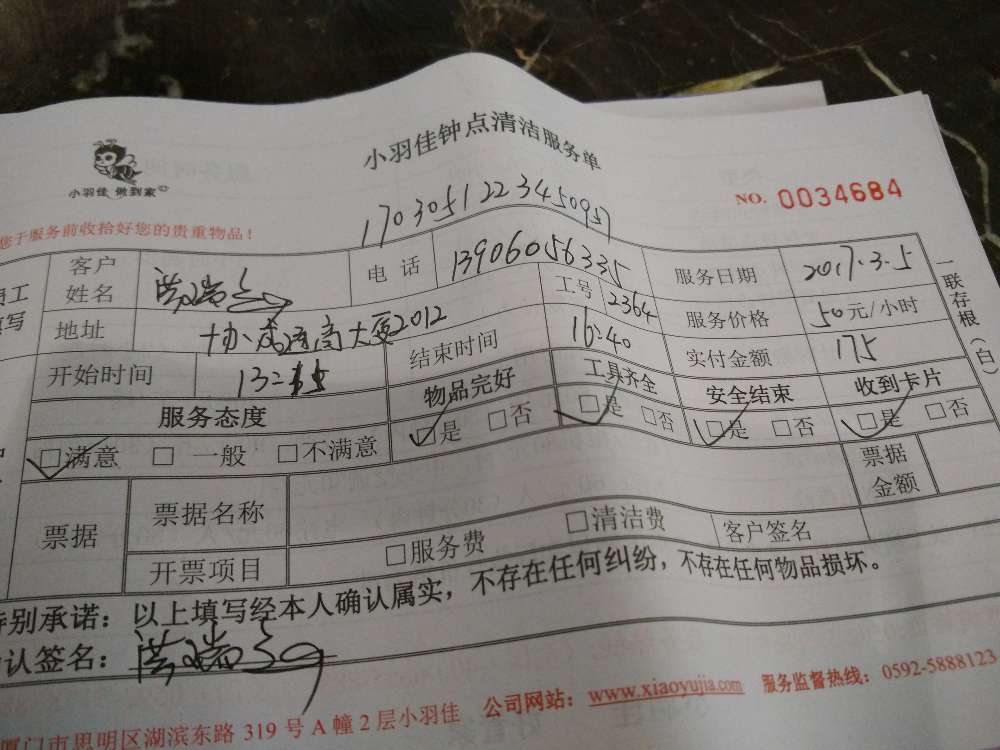 小羽佳钟点清洁服务单
小羽佳 做到家
NO. 0034684
1703051223450957
您于服务前收拾好您的贵重物品！
员工
填写
客户姓名
电话 13906056335
服务日期 2017.3.5
地址
大厦2012
工号 2364
服务价格 50元/小时
开始时间
结束时间 16:40
实付金额 175
一联存根（白）
服务态度 物品完好 工具齐全 安全结束 收到卡片
满意 一般 不满意 是 否 是 否 是 否 是 否
票据 票据名称 票据金额
开票项目 服务费 清洁费 客户签名
特别承诺：以上填写经本人确认属实，不存在任何纠纷，不存在任何物品损坏。
认签名：
厦门市思明区湖滨东路 319 号 A 幢 2 层小羽佳 公司网站：www.xiaoyujia.com 服务监督热线：0592-5888123